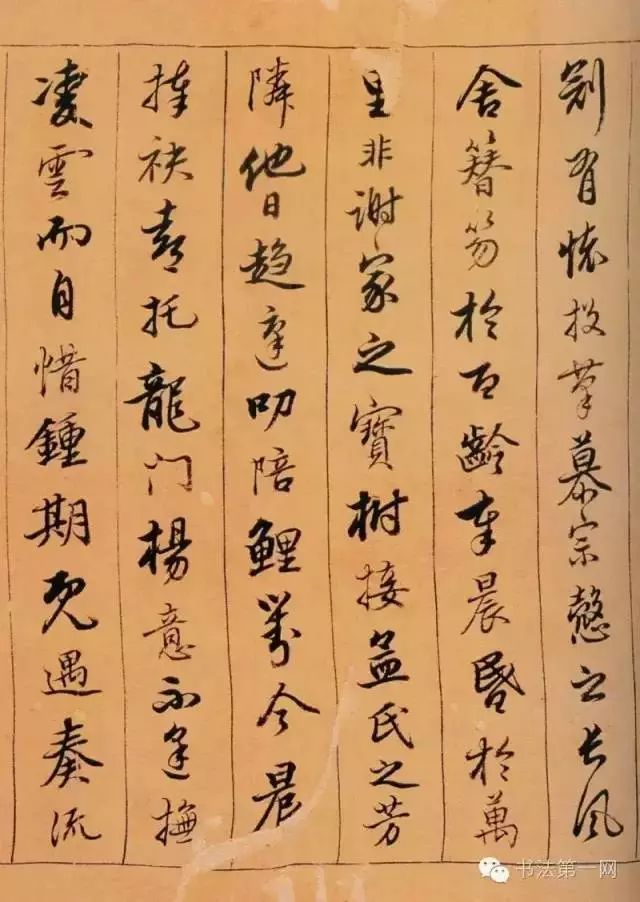 別有懷投筆慕宗愨之長風
舍簪笏於百齡奉晨昏於萬
里非謝家之寶樹接孟氏之芳
隣他日趨庭叨陪鯉對今晨
捧袂喜托龍門楊意不逢撫
凌雲而自惜鍾期既遇奏流
书法第一网